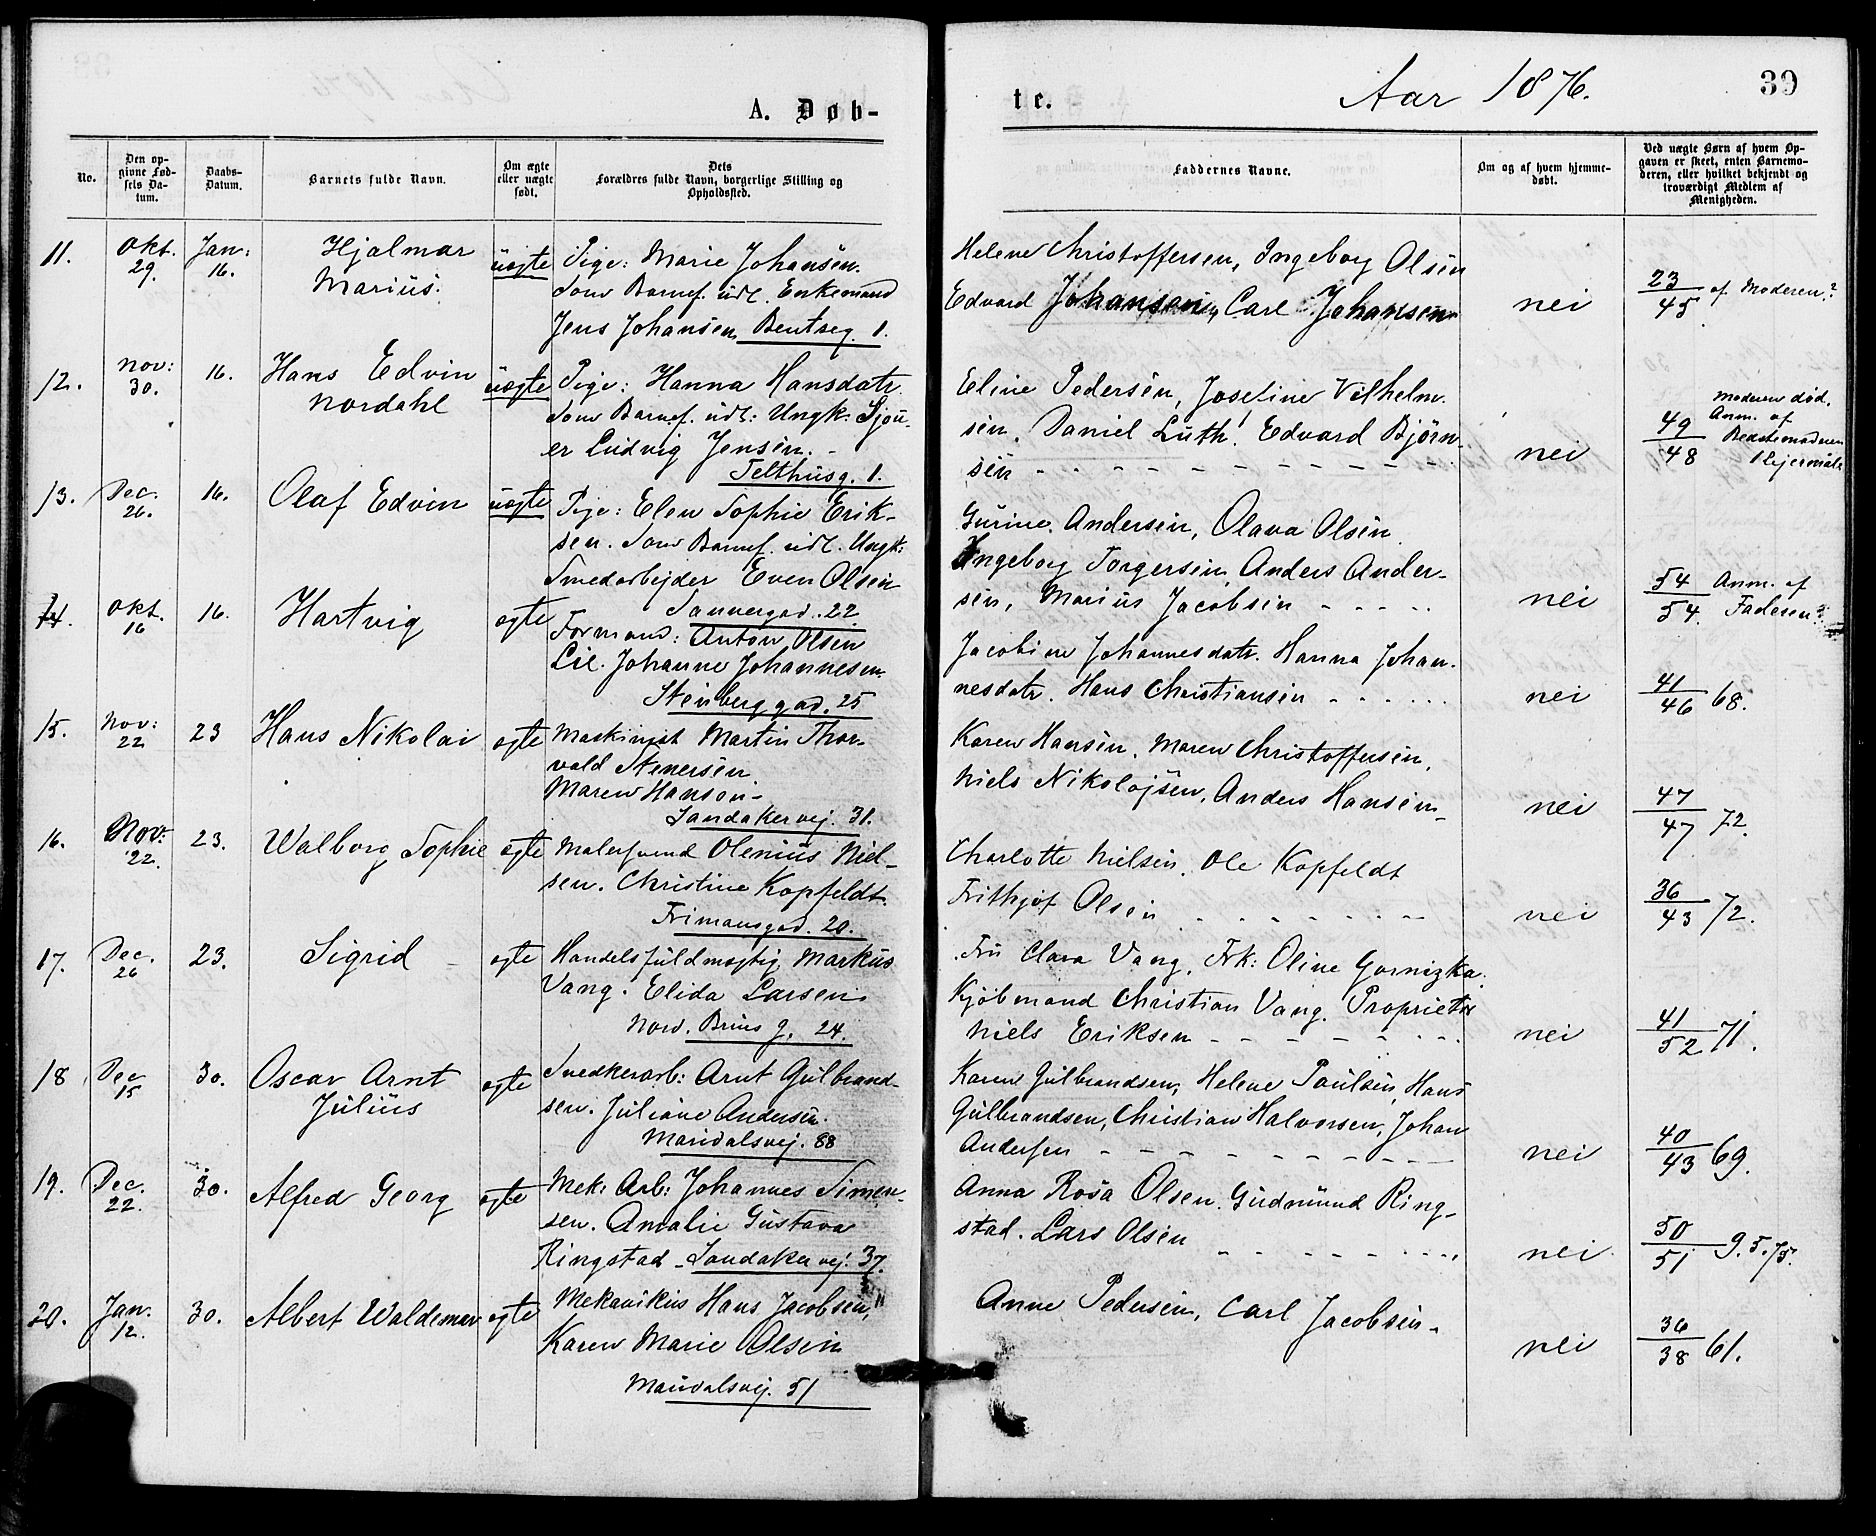 A. Døb-
te.
Aar 1876.
39
No.
Den op-
givne Fød-
sels Da-
tum.
Daabs-
Datum.
Barnets fulde Navn.
Om ægte
eller uægte
født.
Dets
Forældres fulde Navn, borgerlige Stilling og
Opholdssted.
Faddernes Navne.
Om og af hvem hjemme-
døbt.
Ved uægte Børn af hvem Op-
gaven er skeet, enten Barnemo-
deren, eller hvilket bekjendt og
troværdigt Medlem af
Menigheden.
11.
Okt.
29.
Jan:
16.
Hjalmar
Marius.
uægte
Pige: Marie Johansen.
Som Barnef. udl. Enkemand
Jens Johansen, Bentseg. 1.
Helene Christoffersen, Ingeborg Olsen
Edvard Johansen, Carl Johansen
nei
23
45
af Moderen?
12.
Nov:
30.
16.
Hans Edvin
Nordahl
uægte
Pige: Hanna Hansdatr.
Som Barnef. udl: Ungk. Sjou-
er Ludvig Jensen.
Telthusg. 1.
Eline Pedersen, Josefine Vilhelm-
sen. Daniel Luth! Edvard Bjørn-
sen
nei
49
48
Moderen død.
Anm. af
13.
Dec.
26.
16.
Olaf Edvin
uægte
Pige: Elen Sophie Erik-
sen. Som Barnef. udl. Ungk:
Smedarbejder Even Olsen
Sannergad. 22.
Gurine Andersen, Olava Olsen
Ingeborg Torgersen, Anders Ander-
sen, Marius Jacobsen
nei
54
54.
Anm. af
Faderen?
14.
Okt.
16
16.
Hartvig
ægte
Formand: Anton Olsen
Lie. Johanne Johannesen
Stenberggad. 25
Jacobine Johannesdatr. Hanna Johan-
nesdatr. Hans Christiansen
nei
41
46
68.
15.
Nov:
22
23
Hans Nikolai
ægte
Maskinist Martin Thor-
vald Stenersen.
Maren Hansen
Sandakervej. 31.
Karen Hansen, Maren Christoffersen,
Niels Nikolajsen, Anders Hansen
nei
47
47
72.
16.
Nov:
22.
23.
Walborg Sophie
ægte
Malersvend Olenius Niel-
sen. Christine Kopfeldt.
Frimansgad. 20.
Charlotte Nielsen. Ole Kopfeldt
Frithjof Olsen
nei
36
43
72.
17.
Dec.
26
23.
Sigrid
ægte
Handelsfuldmægtig Markus
Vang. Elida Larsen
Nord. Bruns g. 24.
Fru Clara Vang, Frk: Oline Gornizka.
Kjöbmand Christian Vang. Proprietær
Niels Eriksen
nei
41
52
71.
18
Dec
15
30.
Oscar Arnt
Julius
ægte
Snedkerarb: Arnt Gulbrand-
sen. Juliane Andersen.
Maridalsvej. 88
Karen Gulbrandsen, Helene Paulsen, Hans
Gulbrandsen, Christian Halvorsen, Johan
Andersen
nei
40
43
69.
19.
Dec.
22.
30.
Alfred Georg
ægte
Mek: Arb: Johannes Simen-
sen. Amalie Gustava
Ringstad - Sandakervej. 37.
Anna Rosa Olsen. Gudmund Ring-
stad. Lars Olsen
nei
50
51
9.5.75.
20.
Jan.
12.
30.
Albert Waldemar
ægte
Mekanikus Hans Jacobsen,
Karen Marie Olsen
Maridalsvej. 51
Anne Pedersen, Carl Jacobsen
nei
36
38
61.